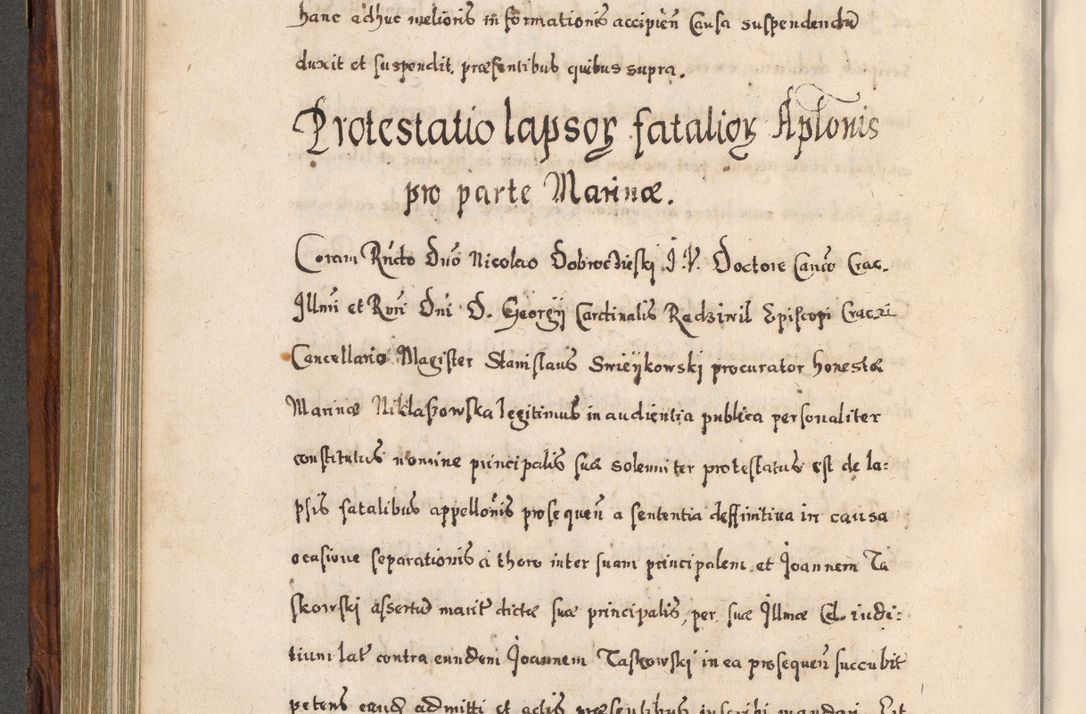 hanc adhuc melioris informationis accipien̄ Causa suspendendū
duxit et suspendit, præsentibus quibus supra.
Protestatio lapsoꝝ fatalioꝝ Aplonis
pro parte Marinæ.
Coram Rńdo Dnō Nicolao Dobrocieski J. V. Doctore Canco Crac.
Jllmi et Rmi Dni D. Georgij Cardinalis Radziwil Episcopi Craczi
Cancellario Magister Stanislaus Swieykowski procurator honestæ
Marinæ Niklaszowska legitimus in audientia publica personaliter
constitutus nomine principalis suæ solemniter protestatus est de la:
psis fatalibus appellōnis prosequeñ a sententia deffinitiua in causa
ocasione separationis a thoro inter suam principalem et Joannem Ta
skowski assertū marit̄ dictæ suæ principalis, per suæ Jllmæ Cel. iudi:
tium lat̄ contra eundem Joannem Taskowski in ea prosequeñ succubit
petens eand̄ admitti et actis præsentibus inscribi mandari. Et